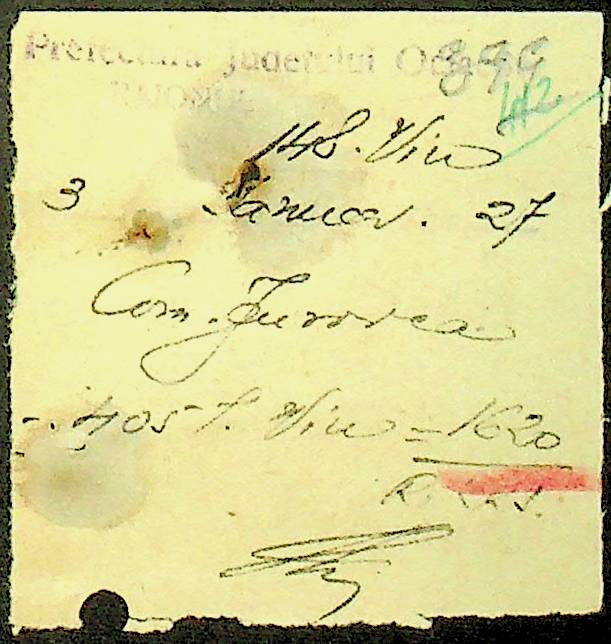 Prefectura Judetului
899
42
148. Vin
3 Januar. 27
Com. Jurovca
-. 405 l. Vin = 1620